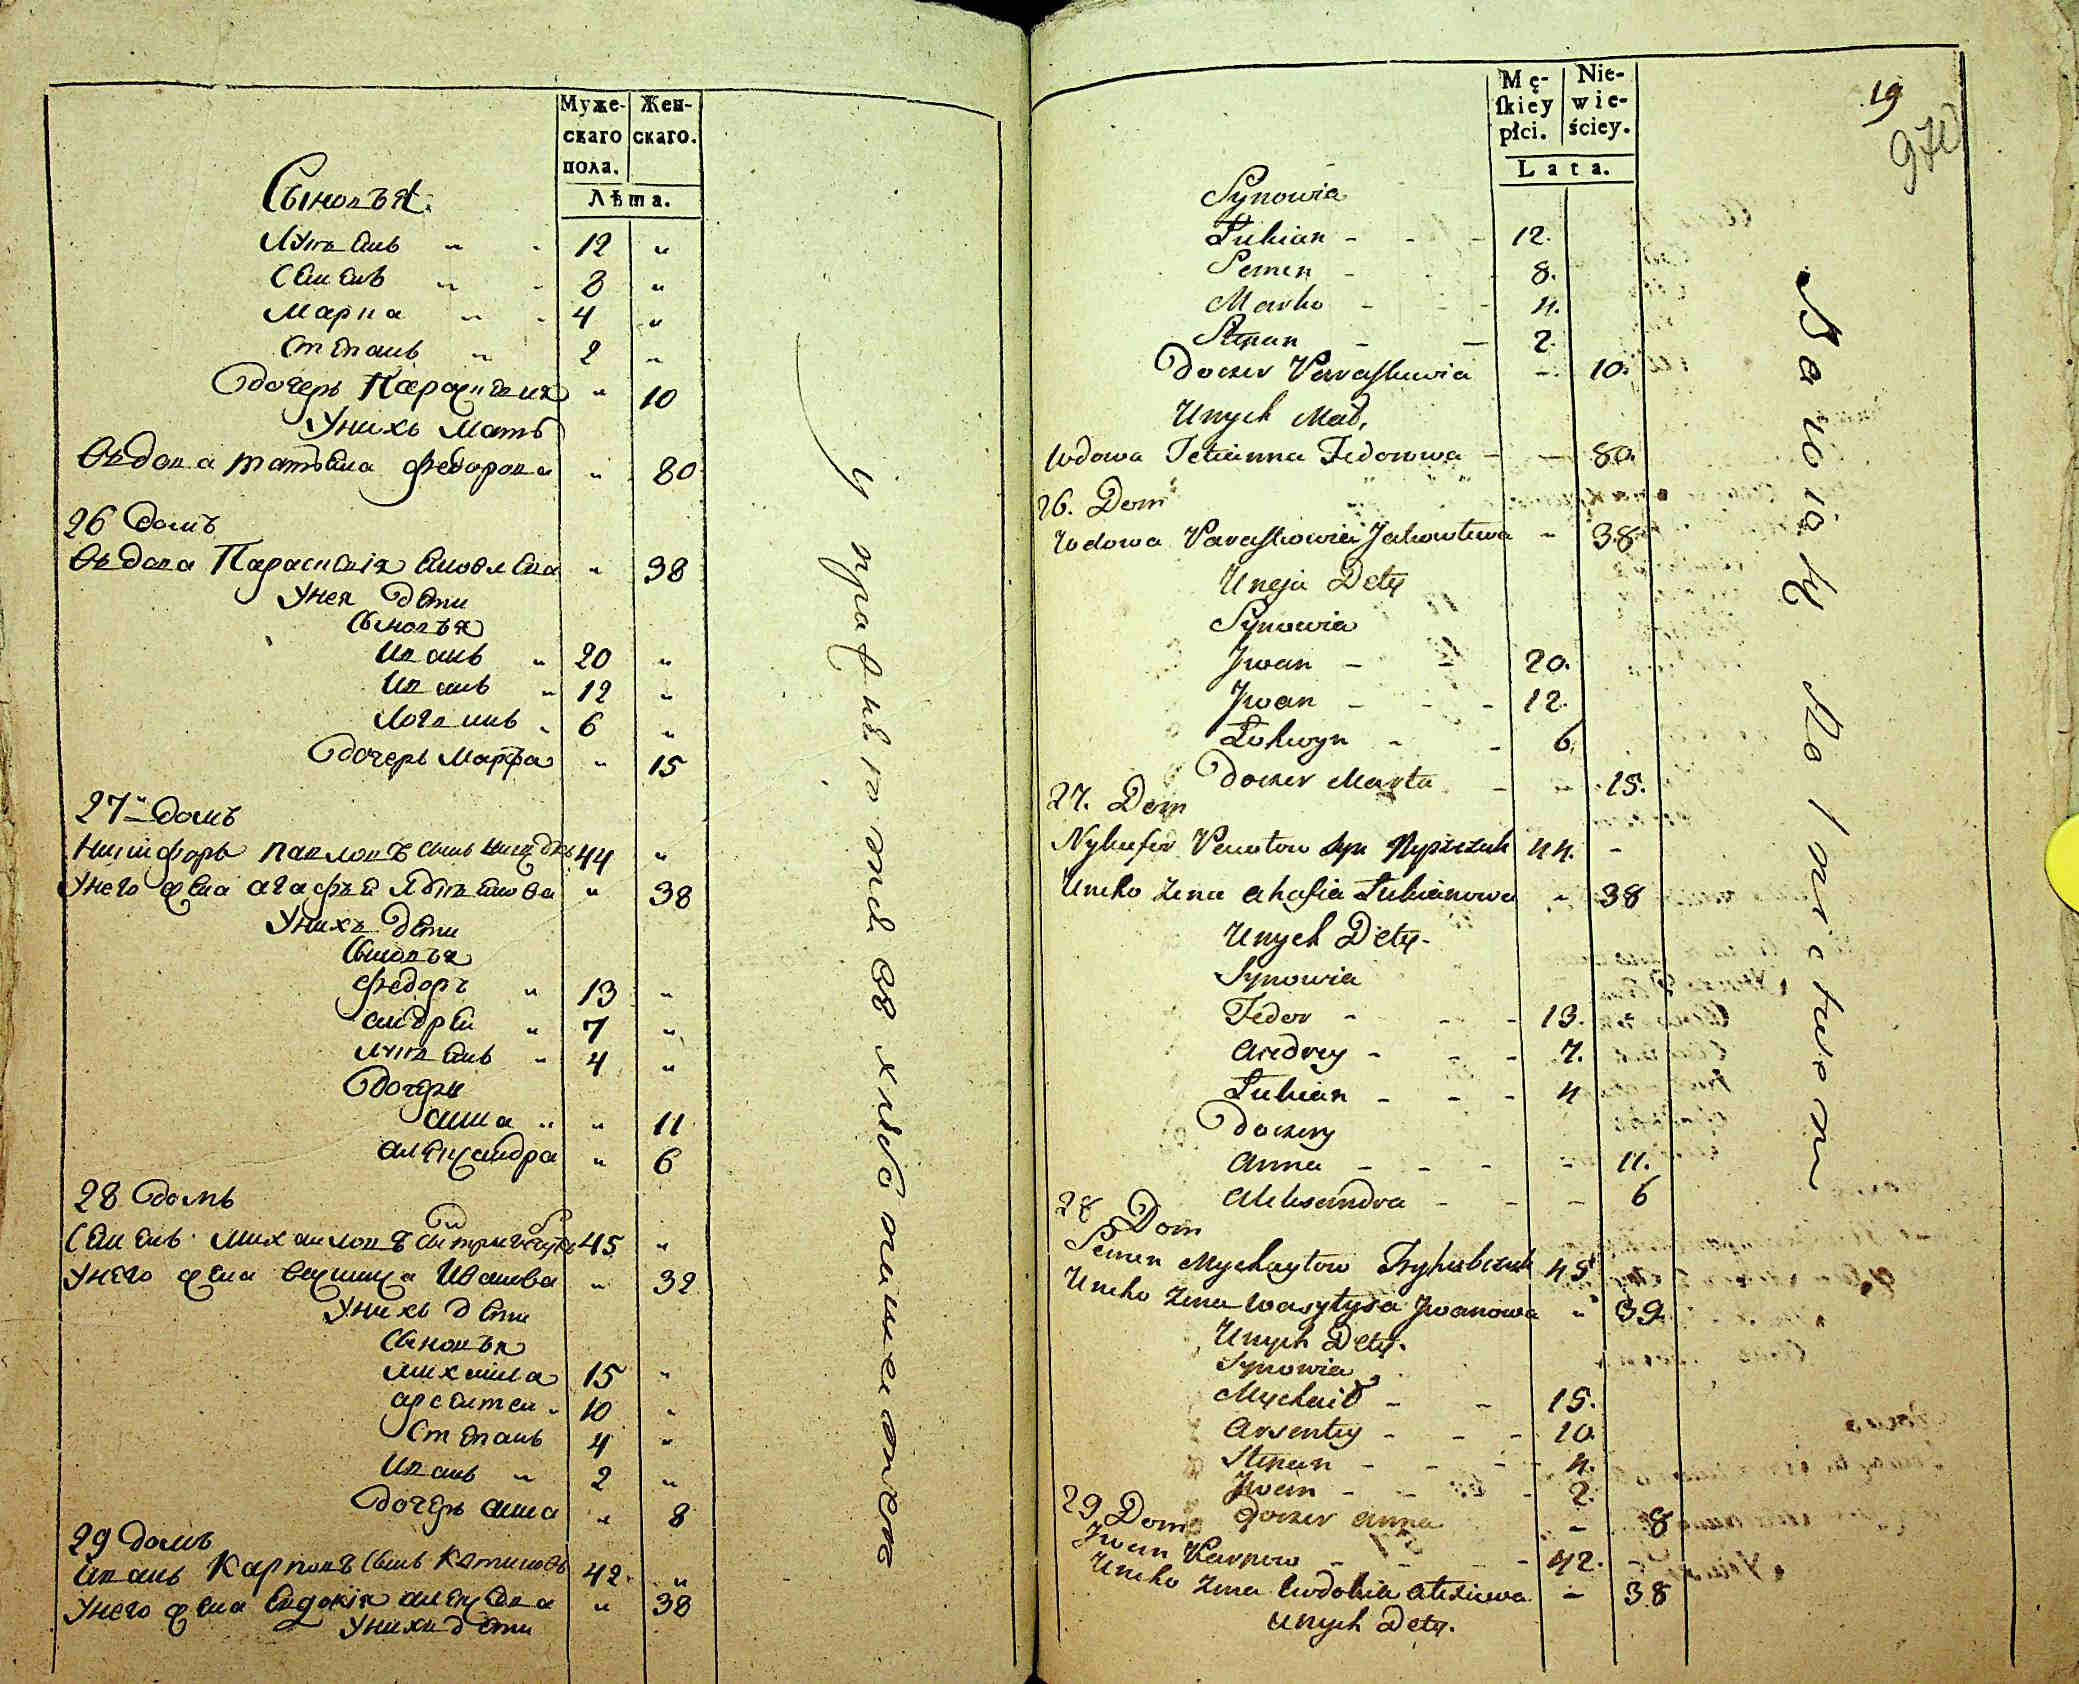 Муже-
скаго
пола.
Жен-
скаго.
Лѣта.
Сыновья
Лукьянъ " 12 "
Семенъ " 8 "
Марка " 4 "
Степанъ " 2 "
дочерь Параскевия " 10
У нихъ мать
вдова Татьяна Федорова " 80
26 домъ
вдова Параскевия " 38
У нея дети
Сыновья
Иванъ " 20 "
Иванъ " 12 "
Логвинъ " 6 "
дочерь Марфа " 15
27й домъ
Никифоръ Павловъ сынъ 44 "
У него жена Агафья Лукьянова " 38
У нихъ дети
Сыновья
Федоръ " 13 "
Андрей " 7 "
Лукьянъ " 4 "
Дочери
Анна " " 11
Александра " 6
28 домъ
Семенъ Михайловъ 45 "
У него жена Иванова " 32
У нихъ дети
Сыновья
Михаила 15 "
Арсентеи " 10 "
Степанъ 4 "
Иванъ " 2 "
дочерь Анна " 8
29 домъ
Иванъ Карповъ сынъ 42 "
У него жена Евдокия " 38
У нихъ дети
Mę-
ſkiey
płci.
Nie-
wie-
ściey.
Lata.
19
970
Synowia
Łukian - - - 12.
Semen - - - 8.
Marko - - - 4.
Stepan - - 2.
Doczer Paraskewia - 10.
Unych Mat,
Wdowa Tetianna Fedorowa - - 80.
26. Dom
Wdowa Paraskowia Jakowlewa - 38
Uneja Dety
Synowia
Jwan - - 20.
Jwan - - - 12.
Łohwyn - - 6.
Doczer Marta - - 15.
27. Dom
Nykyfor Pawłow syn 44. -
Uneho Zena Ahafia Łukianowa - 38
Unych Dety.
Synowia
Fedor - - - 13. -
Andrey - - - 7.
Łukian - - - 4
Doczery
Anna - - - - 11.
Aleksandra - - - 6
28 Dom
Semen Mychayłow Tryhubczuk 45
Uneho Zena Wasylysa Jwanowa " 39.
Unych Dety.
Synowia
Mychaił - - 15.
Arsentiy - - - 10
Stepan - - - - 4.
Jwan - - - 2.
Doczer Anna - 8
29 Dom
Jwan Karpow - - - - 42. -
Uneho Zena Ewdokia Alexiewa - 38
Unych Dety.